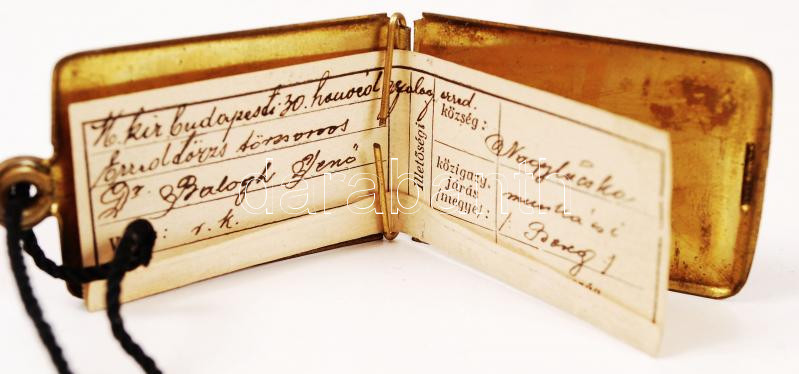 M. kir. budapesti 30. honvéd gyalog ezred.
Ezredtörzs törzsorvos
Dr. Balogh Jenő
r. k.
illetőségi
község:
Nagylucska
közigazg.
járás
(megye):
munkácsi
/ Bereg /
darabanth